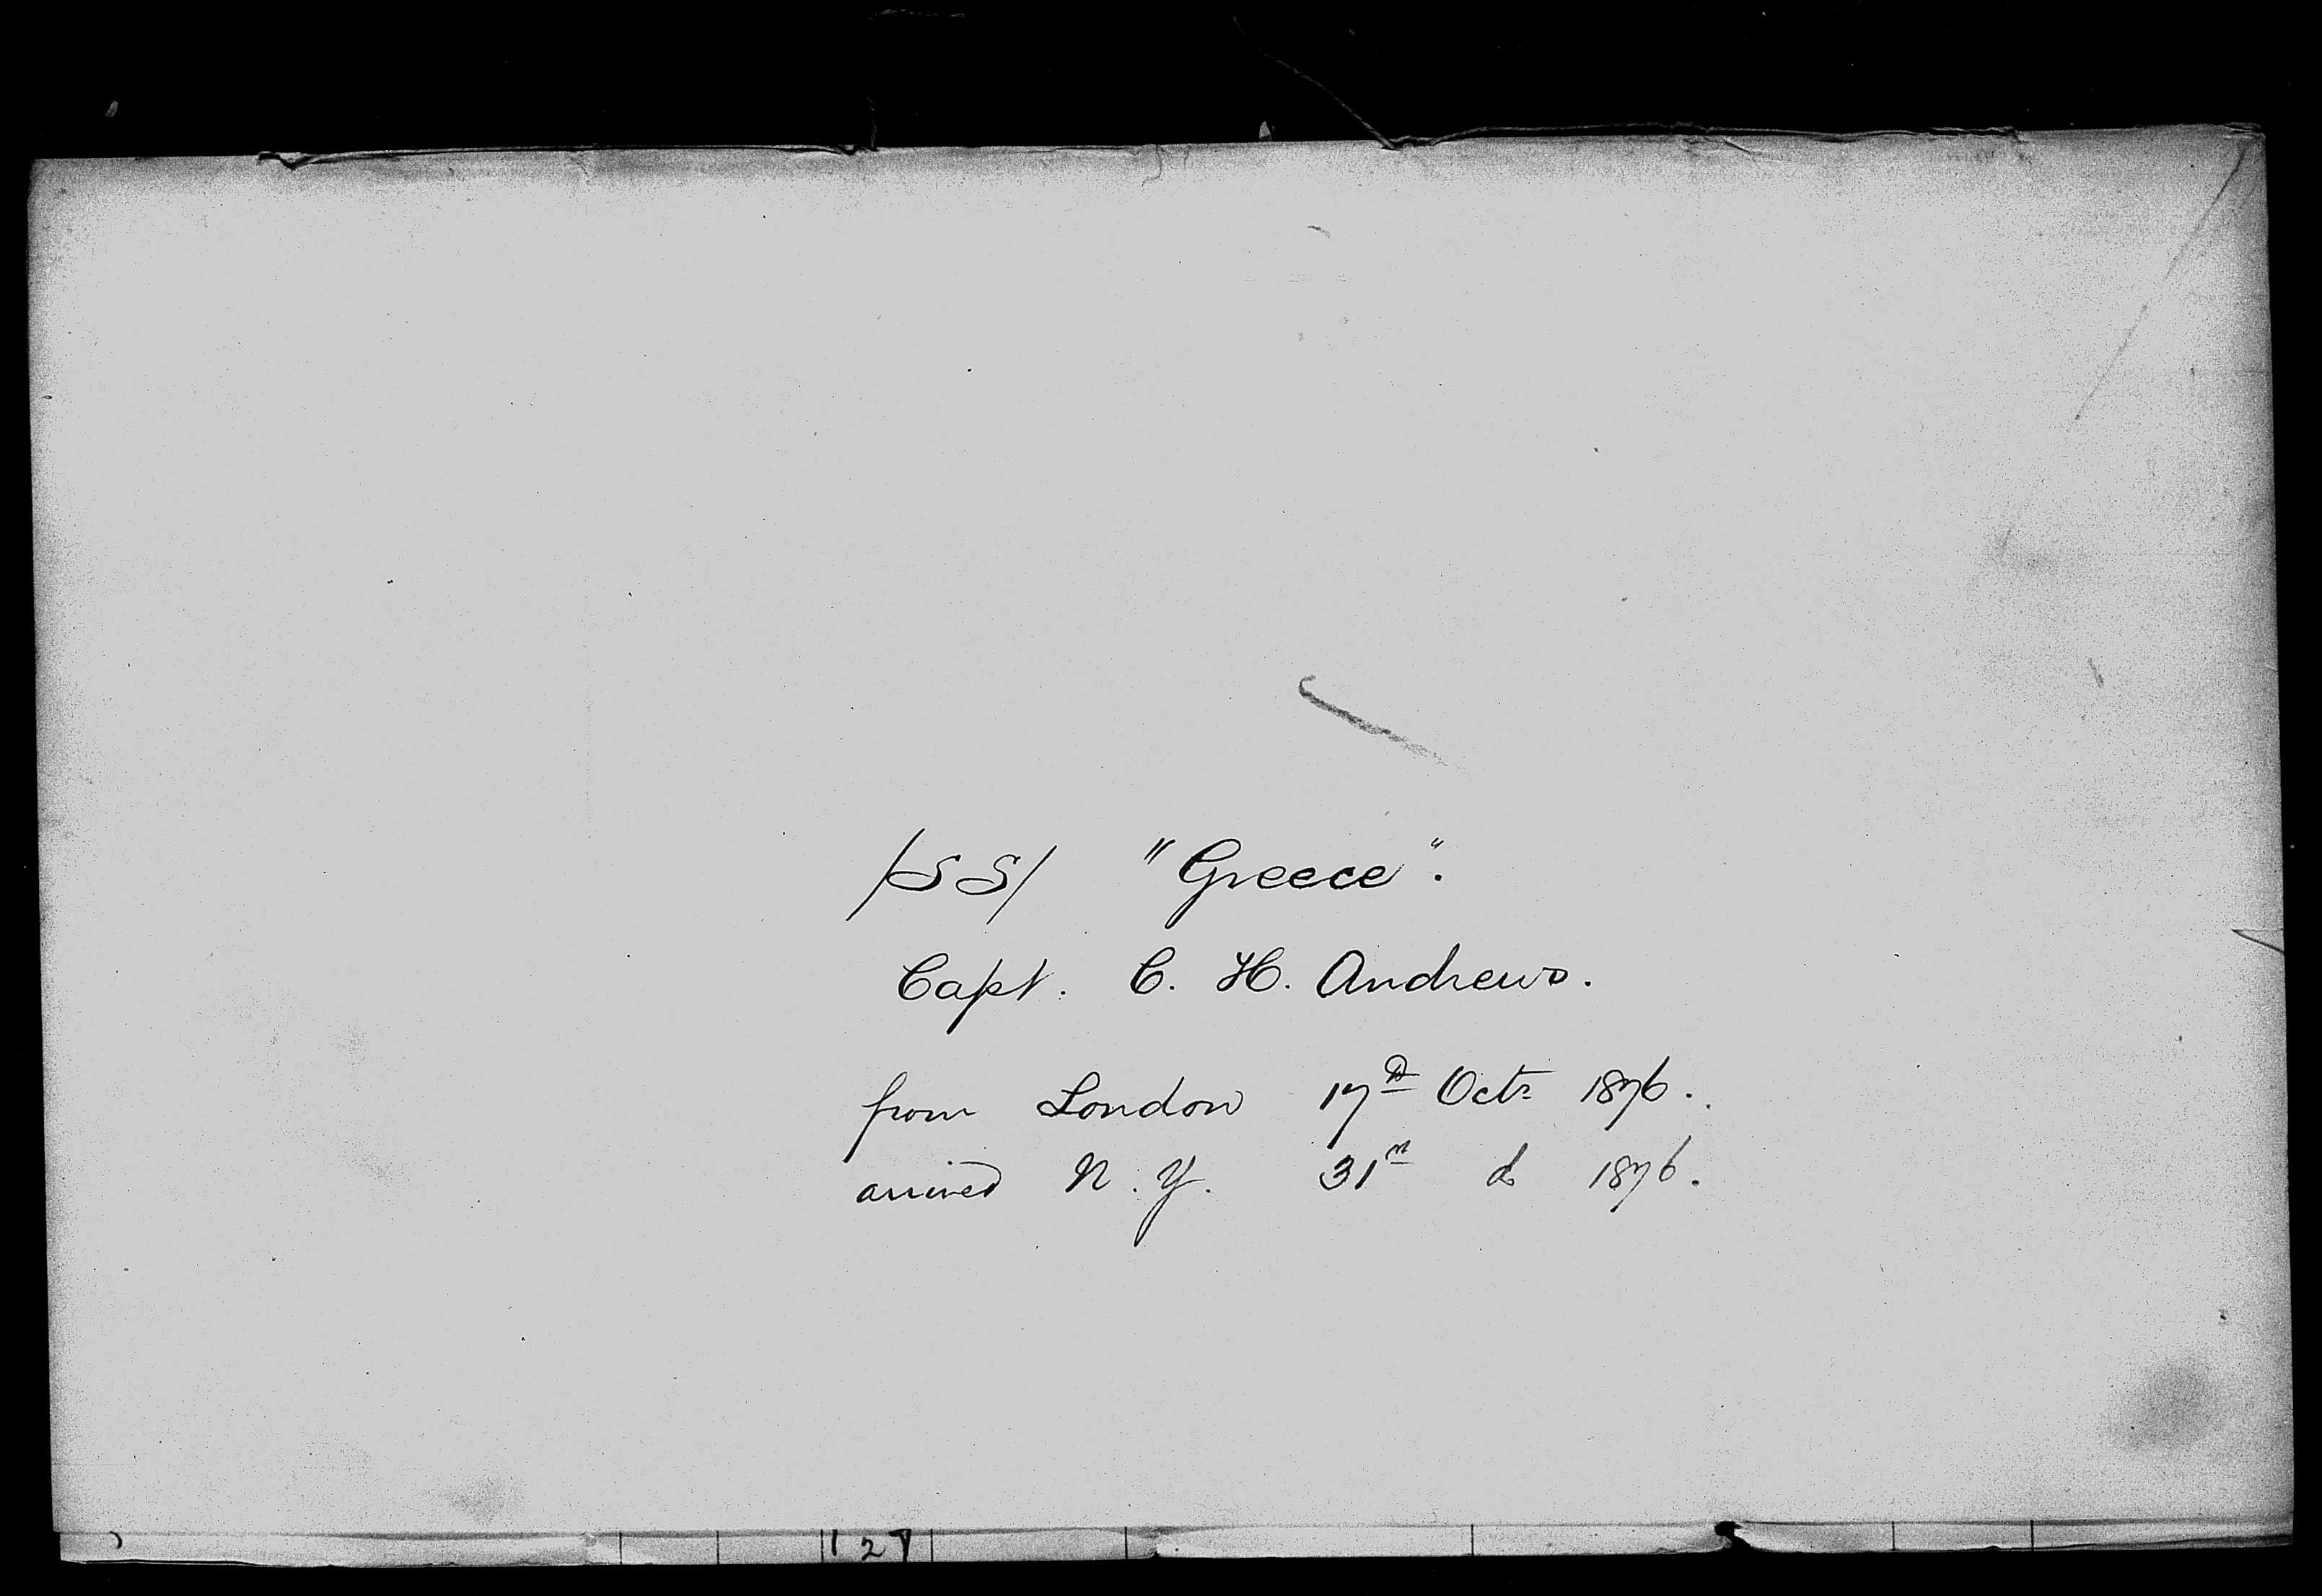 /SS/ "Greece".
Capt. C. H. Andrews.
from London 17th Octr 1876.
arrived N.Y. 31st do 1876.
127